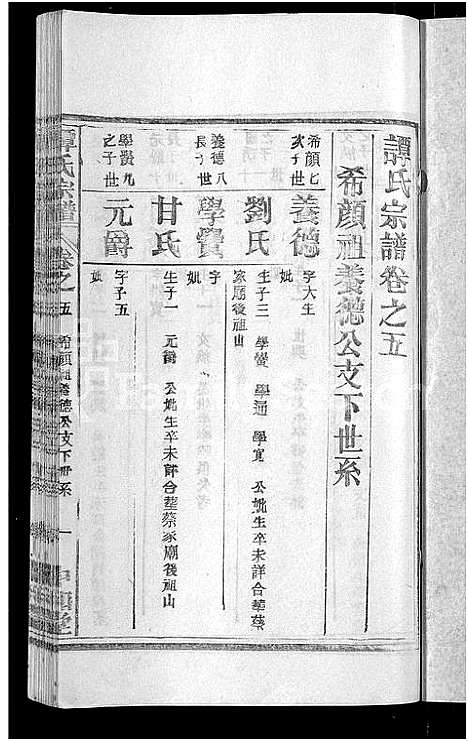 譚氏宗譜卷之五
希顏祖養德公支下世系
希顏七
次子世
養德
字大生
妣
劉氏
生子三 學贇 學通 學寬 公妣生卒未詳合葬蔡
家廟後祖山
養德八
長子世
學贇
字
妣
甘氏
生子一 元爵 公妣生卒未詳合葬蔡家廟後祖山
學贇九
之子世
元爵
字予五
妣
譚氏宗譜 卷之五 希顏祖養德公支下世系 一